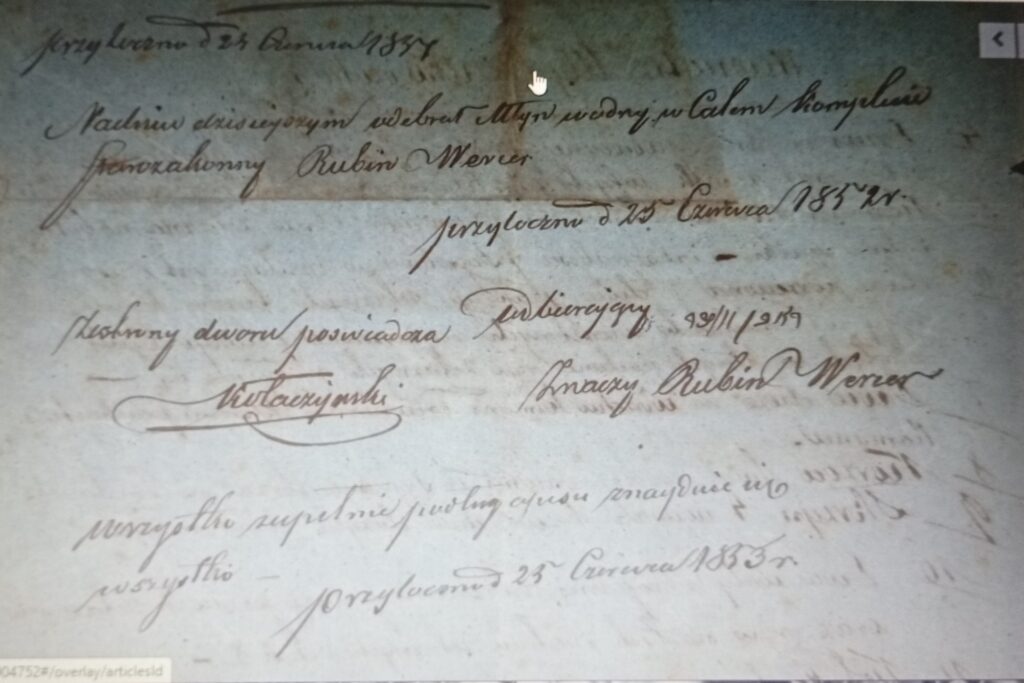 przytoczno d 25 Czerwca 185
Nadniu dzisiejszym odebrał Młyn wodny w Całem Komplecie
Starozakonny Rubin Wercer
przytoczno d 25 Czerwca 1852 r.
Zestrony dworu poświadcza
odbierający
Kołaczyński
Znaczy Rubin Wercer
wszystko zupełnie podług opisu znayduie się
wszystko
przytoczno d 25 Czerwca 1853 r.
004752#/overlay/articlesId